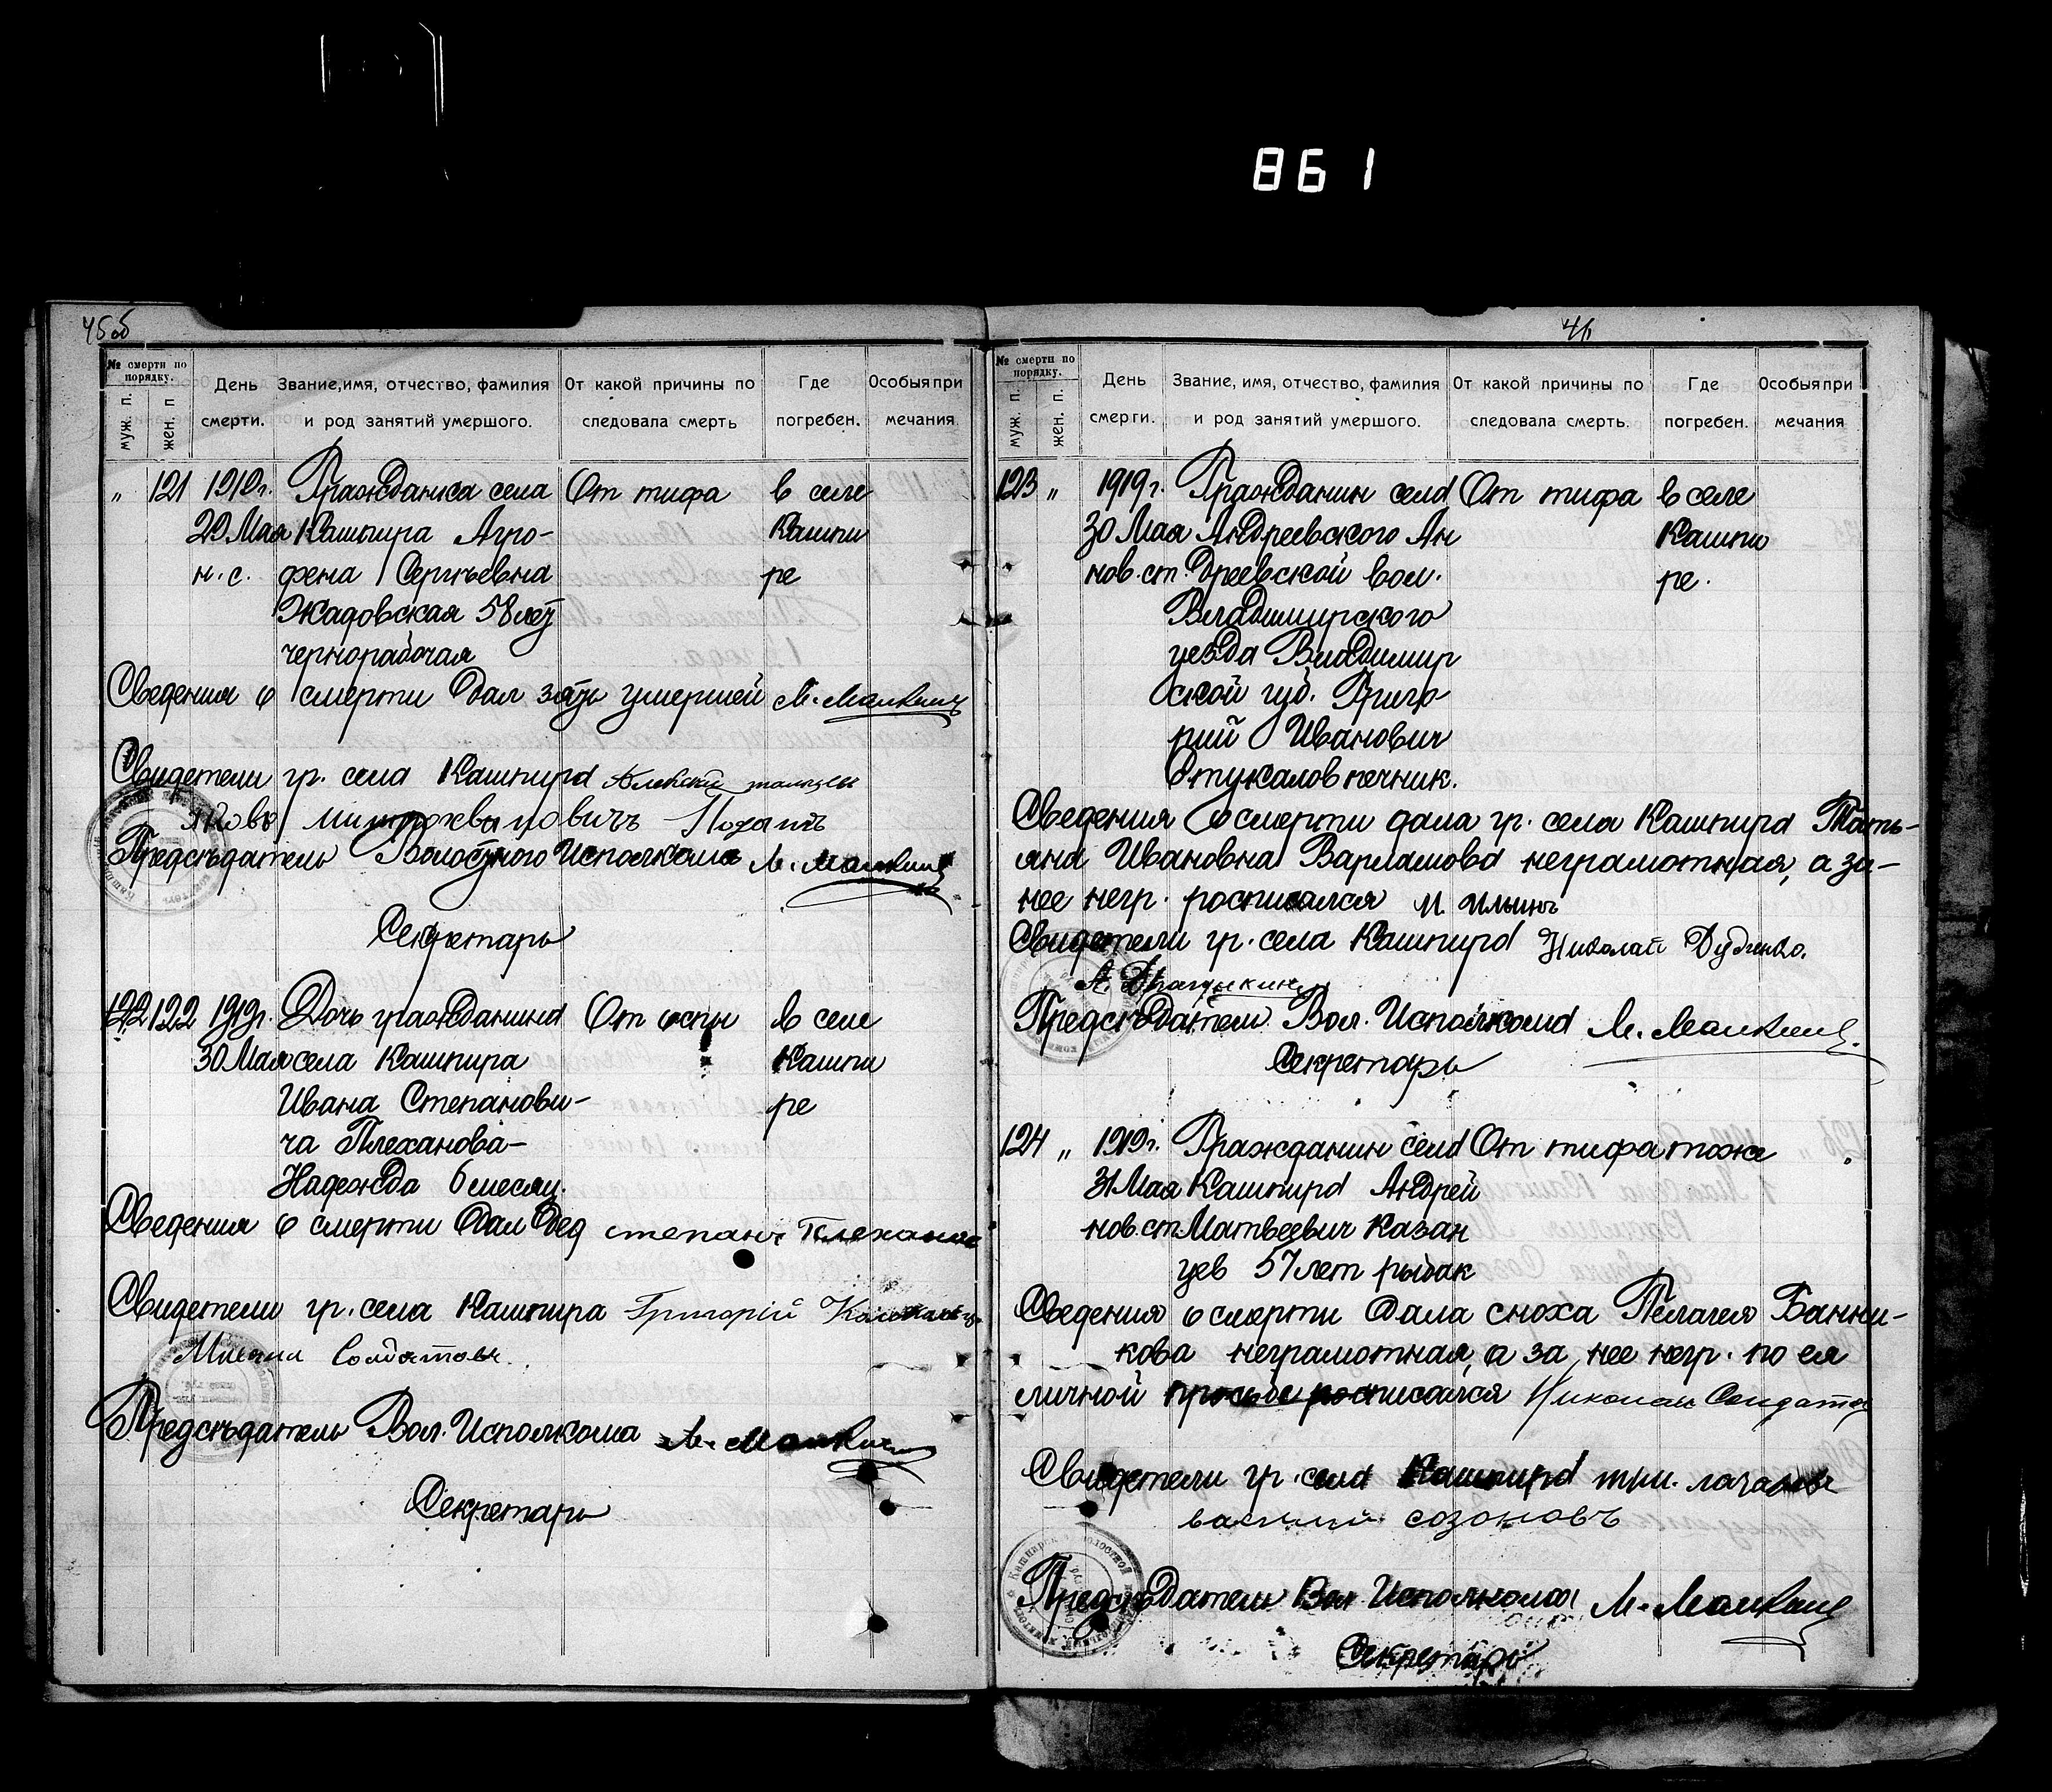 861
45 об
№ смерти по порядку.
муж. п.
жен. п.
День смерти.
Звание, имя, отчество, фамилия и род занятий умершого.
От какой причины последовала смерть
Где погребен.
Особыя примечания
„ 121 1919 г. Гражданка села От тифа в селе
29 Мая Кашпира Агро- Кашпи
н. с. фена Сергѣевна ре
Жадовская 58 лет
чернорабочая
Сведения о смерти дал зять умершей М. Малкин
Свидетели гр. села Кашпира
Митрофановичъ
Предсѣдатель Волостного Исполкома М. Малкин
Секретарь
122 122 1919 г. Дочь гражданина От оспы в селе
30 Мая села Кашпира Кашпи
Ивана Степанови- ре
ча Плеханова-
Надежда 6 месяц.
Сведения о смерти дал дед степанъ Плеханов
Свидетели гр. села Кашпира Григорій
Солдатовъ
Предсѣдатель Вол. Исполкома М. Малкин
Секретарь
46
№ смерти по порядку.
муж. п.
жен. п.
День смерти.
Звание, имя, отчество, фамилия и род занятий умершого.
От какой причины последовала смерть.
Где погребен.
Особыя примечания
123 „ 1919 г. Гражданин села От тифа в селе
30 Мая Андреевского Ан Кашпи
нов. ст. дреевской вол. ре.
Владимирского
уезда Владимир
ской губ. Григо
рий Иванович
Стукалов печник.
Сведения о смерти дала гр. села Кашпира Тать-
яна Ивановна Варламова неграмотная, а за-
нее негр. росписался И. Ильинъ
Свидетели гр. села Кашпира Николай Дудинко.
А. Драгункин
Предсѣдатель Вол. Исполкома М. Малкин
Секретарь
124 „ 1919 г. Гражданин села От тифа тоже
31 Мая Кашпира Андрей
нов. ст. Матвеевич Казан
цев 57 лет рыбак
Сведения о смерти дала сноха Пелагея Банни-
кова неграмотная, а за нее негр. по ея
личной просьбе росписался Николай Солдатов
Свидетели гр. села Кашпира
василий созоновъ
Предсѣдатель Вол. Исполкома М. Малкин
Секретарь